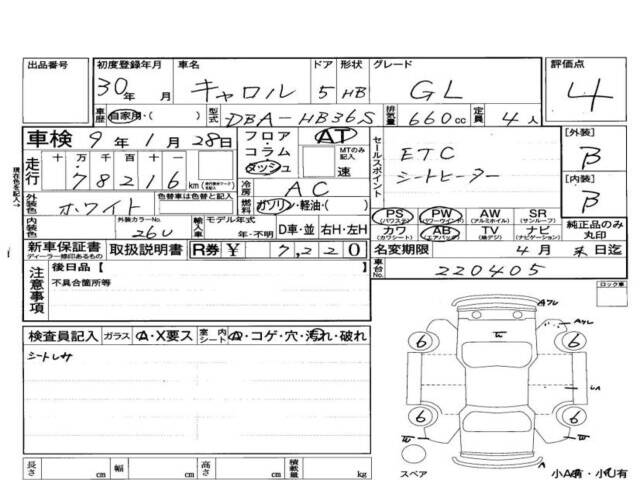 出品番号 初度登録年月 車名 ドア 形状 グレード 評価点
30年 月 キャロル 5 HB GL 4
車歴 自家用・( ) 型式 DBA-HB36S 排気量 660cc 定員 4人
車検 9年1月28日 フロア・コラム・ダッシュ AT MTのみ記入 速
走行 十 万 千 百 十 一
78216km
冷房 AC
外装色 ホワイト 色替車は色替と記入 燃料 ガソリン・軽油・( )
内装色 外装カラーNo. 26U 輸入車 モデル年式 年・不明 D車・並 右H・左H
セールスポイント
ETC
シートヒーター
[外装] B
[内装] B
PS(パワステ) PW(パワーウインド) AW(アルミホイル) SR(サンルーフ)
カワ(カワシート) AB(エアバッグ) TV(地デジ) ナビ(ナビゲーション)
純正品のみ丸印
新車保証書 ディーラー捺印あるもの 取扱説明書 R券 ¥ 7,220 名変期限 4月末日迄
車台No. 220405
現在色を記入→
注意事項 後日品【
不具合箇所等
ロック車
検査員記入 ガラス A・X要ス 室内シート A・コゲ・穴・汚れ・破れ
6 6
6 6
スペア
長さ cm 幅 cm 高さ cm 積載量 kg
小A有・小U有